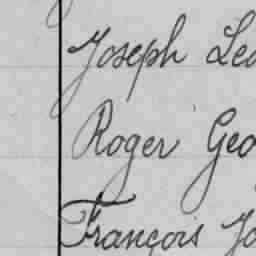 Joseph Leo
Roger Geo
François Jo